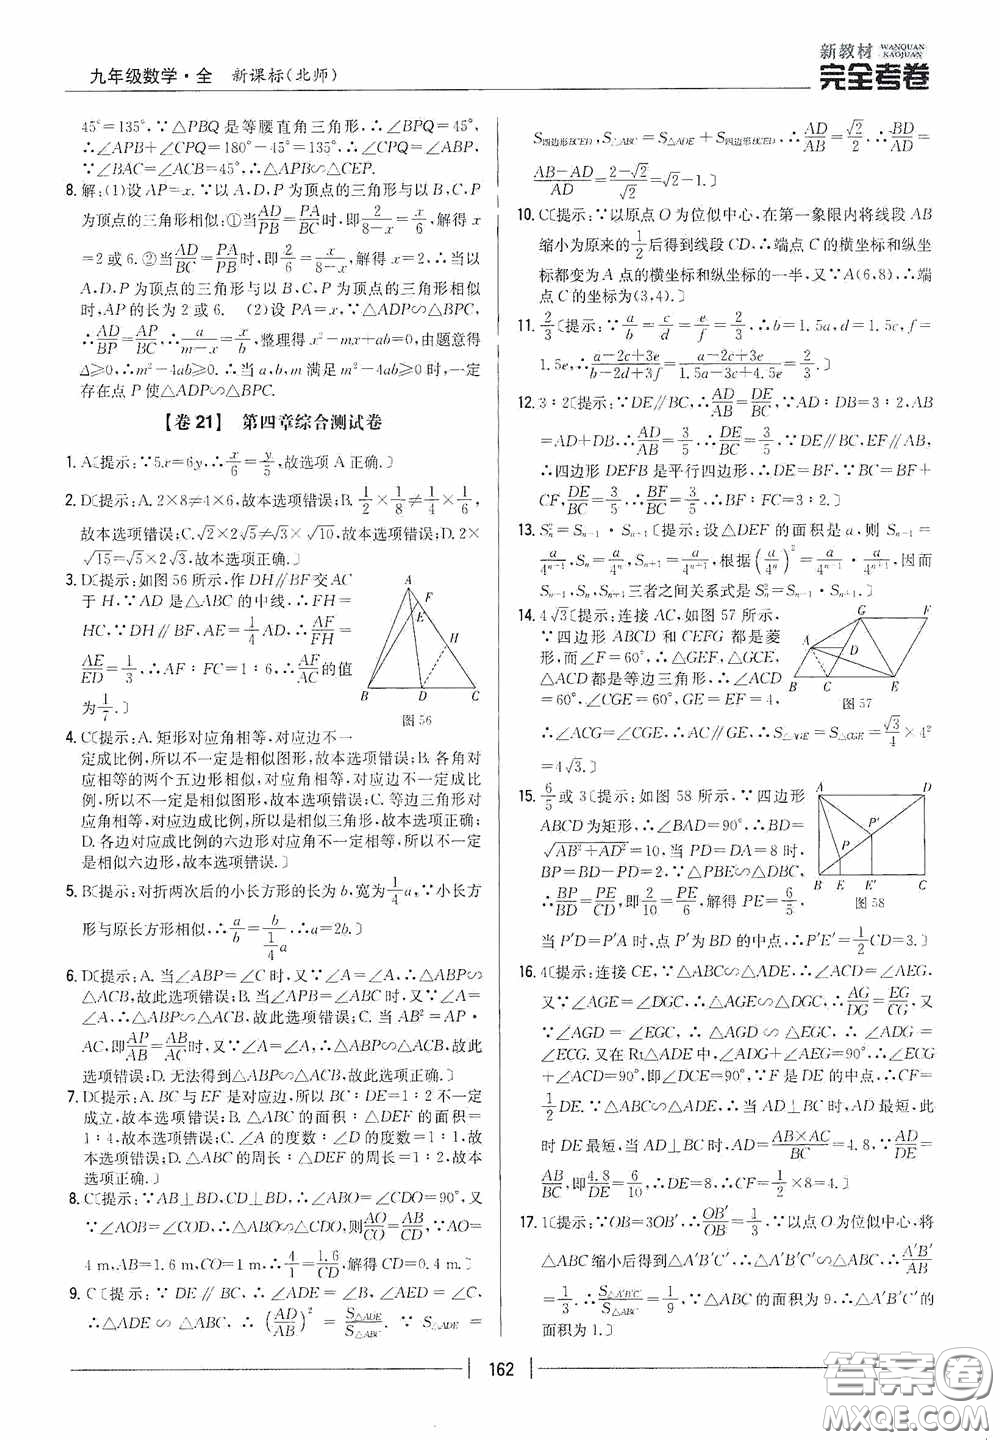 九年级数学·全 新课标(北师)
新教材 WANQUAN KAOJUAN
完全考卷
45°=135°,∵△PBQ 是等腰直角三角形,∴∠BPQ=45°,
∴∠APB+∠CPQ=180°-45°=135°,∴∠APB=∠CEP.
∵∠BAC=∠ACB=45°,∴△APB∽△CEP.
8. 解:(1)设 AP=x.∵以 A、D、P 为顶点的三角形与以 B、C、P
为顶点的三角形相似:①当AD/PB=PA/BC时,即2/(8-x)=x/6,解得 x
=2或6.②当AD/BC=PA/PB时,即2/6=x/(8-x),解得 x=2,∴当以
A、D、P 为顶点的三角形与以 B、C、P 为顶点的三角形相似
时,AP的长为2或6. (2)设 PA=x,∵△ADP∽△BPC,
∴AD/BP=AP/BC,∴a/(m-x)=x/b,解得:x²-mx+ab=0,由题意得
Δ≥0,∴m²-4ab≥0.∴当 a,b,m 满足 m²-4ab≥0时,一定
存在点 P 使△ADP∽△BPC.
【卷 21】 第四章综合测试卷
1. A〔提示:∵5x=6y,∴x/6=y/5,故选项 A 正确.〕
2. D〔提示:A. 2×8≠4×6,故本选项错误;B. 1/2×1/8≠1/4×1/6,
故本选项错误;C.√2×2√5≠√3×√10,故本选项错误;D. 2×
√15=√5×2√3,故本选项正确.〕
3. D〔提示:如图 56 所示,作 DH∥BF 交 AC
于 H,∵AD 是△ABC 的中线,∴FH=
HC,∵DH∥BF,AE=1/4AD,∴AF/FH=
AE/ED=1/3,∴AF∶FC=1∶6,∴AF/AC的值
为1/7.〕
A F E H B D C
图 56
4. C〔提示:A. 矩形对应角相等,对应边不一
定成比例,所以不一定是相似图形,故本选项错误;B. 各角对
应相等的两个五边形相似,对应角相等,对应边不一定成比
例,所以不一定是相似图形,故本选项错误;C. 等边三角形对
应角相等,对应边成比例,所以是相似三角形,故本选项正确;
D. 各边对应成比例的六边形对应角不一定相等,所以不一定
是相似六边形,故本选项错误.〕
5. B〔提示:对折两次后的小长方形的长为 b,宽为1/4a,∵小长方
形与原长方形相似,∴a/b=b/(1/4a),∴a=2b.〕
6. D〔提示:A. 当∠ABP=∠C 时,又∵∠A=∠A,∴△ABP∽
△ACB,故此选项错误;B. 当∠APB=∠ABC 时,又∵∠A=
∠A,∴△ABP∽△ACB,故此选项错误;C. 当 AB²=AP·
AC,即AP/AB=AB/AC时,又∵∠A=∠A,∴△ABP∽△ACB,故此
选项错误;D. 无法得到△ABP∽△ACB,故此选项正确.〕
7. D〔提示:A. BC 与 EF 是对应边,所以 BC∶DE=1∶2不一定
成立,故本选项错误;B. △ABC 的面积∶△DEF 的面积=
1∶4,故本选项错误;C. ∠A 的度数∶∠D 的度数=1∶1,故
本选项错误;D. △ABC 的周长∶△DEF 的周长=1∶2,故本
选项正确.〕
8. C〔提示:∵AB⊥BD,CD⊥BD,∴∠ABO=∠CDO=90°,又
∵∠AOB=∠COD,∴△ABO∽△CDO,则AO/CO=AB/CD,∵AO=
4 m,AB=1.6 m,CO=1 m,∴4/1=1.6/CD,解得 CD=0.4 m.〕
9. C〔提示:∵DE∥BC,∴∠ADE=∠B,∠AED=∠C,
∴△ADE∽△ABC,∴(AD/AB)²=S△ADE/S△ABC.∵S△ADE=
S四边形BCED,S△ABC=S△ADE+S四边形BCED,∴AD/AB=√2/2,∴BD/AD=
(AB-AD)/AD=(2-√2)/√2=√2-1.〕
10. C〔提示:∵以原点 O 为位似中心,在第一象限内将线段 AB
缩小为原来的1/2后得到线段 CD,∴端点 C 的横坐标和纵坐
标都变为 A 点的横坐标和纵坐标的一半,又∵A(6,8),∴端
点 C 的坐标为(3,4).〕
11. 2/3〔提示:∵a/b=c/d=e/f=2/3,∴b=1.5a,d=1.5c,f=
1.5e,∴(a-2c+3e)/(b-2d+3f)=(a-2c+3e)/(1.5a-3c+4.5e)=2/3.〕
12. 3∶2〔提示:∵DE∥BC,∴AD/AB=DE/BC,∵AD∶DB=3∶2,AB=
AD+DB,∴AD/AB=3/5,∴DE/BC=3/5,∵DE∥BC,EF∥AB,
∴四边形 DEFB 是平行四边形,∴DE=BF,∵BC=BF+
CF,DE/BC=3/5,∴BF/BC=3/5,∴BF∶FC=3∶2.〕
13. Sₙ²=Sₙ₋₁·Sₙ₊₁〔提示:设△DEF 的面积是 a,则 Sₙ₋₁=
a/4ⁿ⁻¹,Sₙ=a/4ⁿ,Sₙ₊₁=a/4ⁿ⁺¹,根据(a/4ⁿ)²=a/4ⁿ⁻¹·a/4ⁿ⁺¹,因而
Sₙ₋₁,Sₙ,Sₙ₊₁三者之间关系式是 Sₙ²=Sₙ₋₁·Sₙ₊₁.〕
14. 4√3〔提示:连接 AC,如图 57 所示,
∵四边形 ABCD 和 CEFG 都是菱
形,而∠F=60°,∴△GEF,△GCE,
△ACD 都是等边三角形,∴∠ACD
=60°,∠CGE=60°,GE=EF=4,
∴∠ACG=∠CGE,∴AC∥GE,∴S△AGE=S△CGE=√3/4×4²
=4√3.〕
G F A D B C E
图 57
15. 6/5或3〔提示:如图 58 所示,∵四边形
ABCD 为矩形,∴∠BAD=90°,∴BD=
√(AB²+AD²)=10,当 PD=DA=8时,
BP=BD-PD=2,∵△PBE∽△DBC,
∴BP/BD=PE/CD,即2/10=PE/6,解得 PE=6/5,
当 P'D=P'A 时,点 P'为 BD 的中点,∴P'E'=1/2CD=3.〕
A D P' P B E E' C
图58
16. 4〔提示:连接 CE,∵△ABC∽△ADE,∴∠ACD=∠AEG,
又∵∠AGE=∠DGC,∴△AGE∽△DGC,∴AG/DG=EG/CG,又
∵∠AGD=∠EGC,∴△AGD∽△EGC,∴∠ADG=
∠ECG,又在 Rt△ADE 中,∠ADG+∠AEG=90°,∴∠ECG
+∠ACD=90°,即∠DCE=90°,∵F 是 DE 的中点,∴CF=
1/2DE.∵△ABC∽△ADE,∴当 AD⊥BC 时,AD 最短,此
时 DE 最短,当 AD⊥BC 时,AD=(AB×AC)/BC=4.8,∵AD/DE=
AB/BC,即4.8/DE=6/10,∴DE=8,∴CF=1/2×8=4.〕
17. 1〔提示:∵OB=3OB',∴OB'/OB=1/3,∵以点 O 为位似中心,将
△ABC 缩小后得到△A'B'C',∴△A'B'C'∽△ABC,∴A'B'/AB
=1/3.∴S△A'B'C'/S△ABC=1/9,∵△ABC 的面积为 9,∴△A'B'C'的
面积为 1.〕
162
答案圈
MXQE.COM